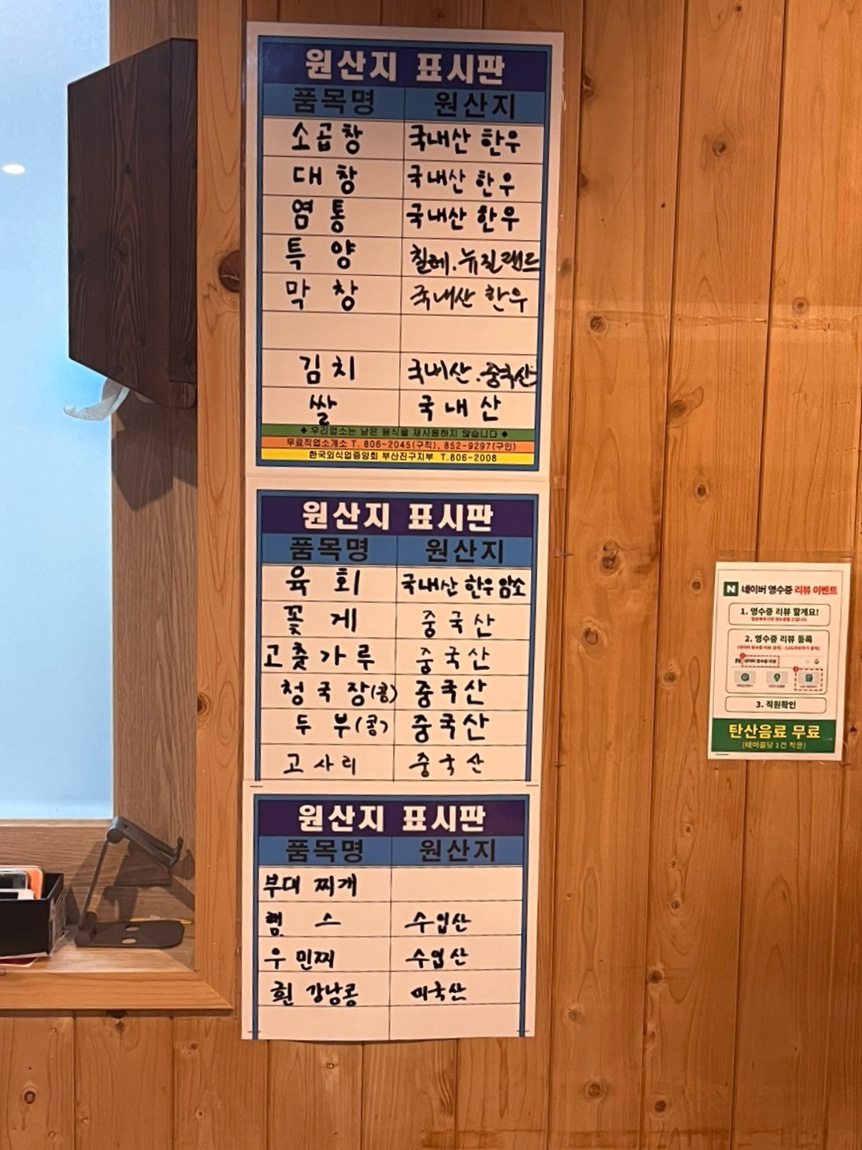 원산지 표시판
품목명 원산지
소곱창 국내산 한우
대창 국내산 한우
염통 국내산 한우
특양 칠레.뉴질랜드
막창 국내산 한우
김치 국내산.중국산
쌀 국내산
◆ 우리업소는 남은 음식을 재사용하지 않습니다 ◆
무료직업소개소 T. 806-2045(구직), 852-9297(구인)
한국외식업중앙회 부산진구지부 T.806-2008
원산지 표시판
품목명 원산지
육회 국내산 한우 암소
꽃게 중국산
고춧가루 중국산
청국장(콩) 중국산
두부(콩) 중국산
고사리 중국산
원산지 표시판
품목명 원산지
부대 찌개
햄 스 수입산
우 민찌 수입산
흰 강낭콩 미국산
N 네이버 영수증 리뷰 이벤트
1. 영수증 리뷰 할게요!
2. 영수증 리뷰 등록
3. 직원확인
탄산음료 무료
(테이블당 1건 적용)